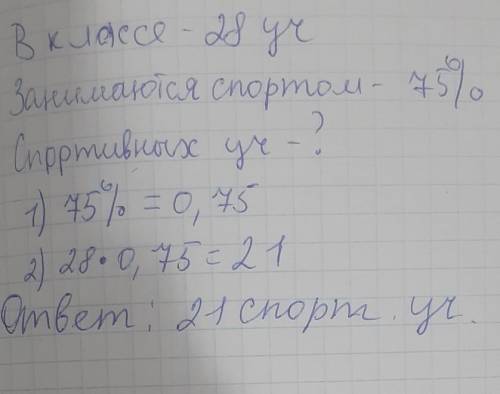 В классе - 28 уч
Занимаются спортом - 75%
Спортивных уч - ?
1) 75% = 0,75
2) 28 · 0,75 = 21
Ответ: 21 спорт. уч.